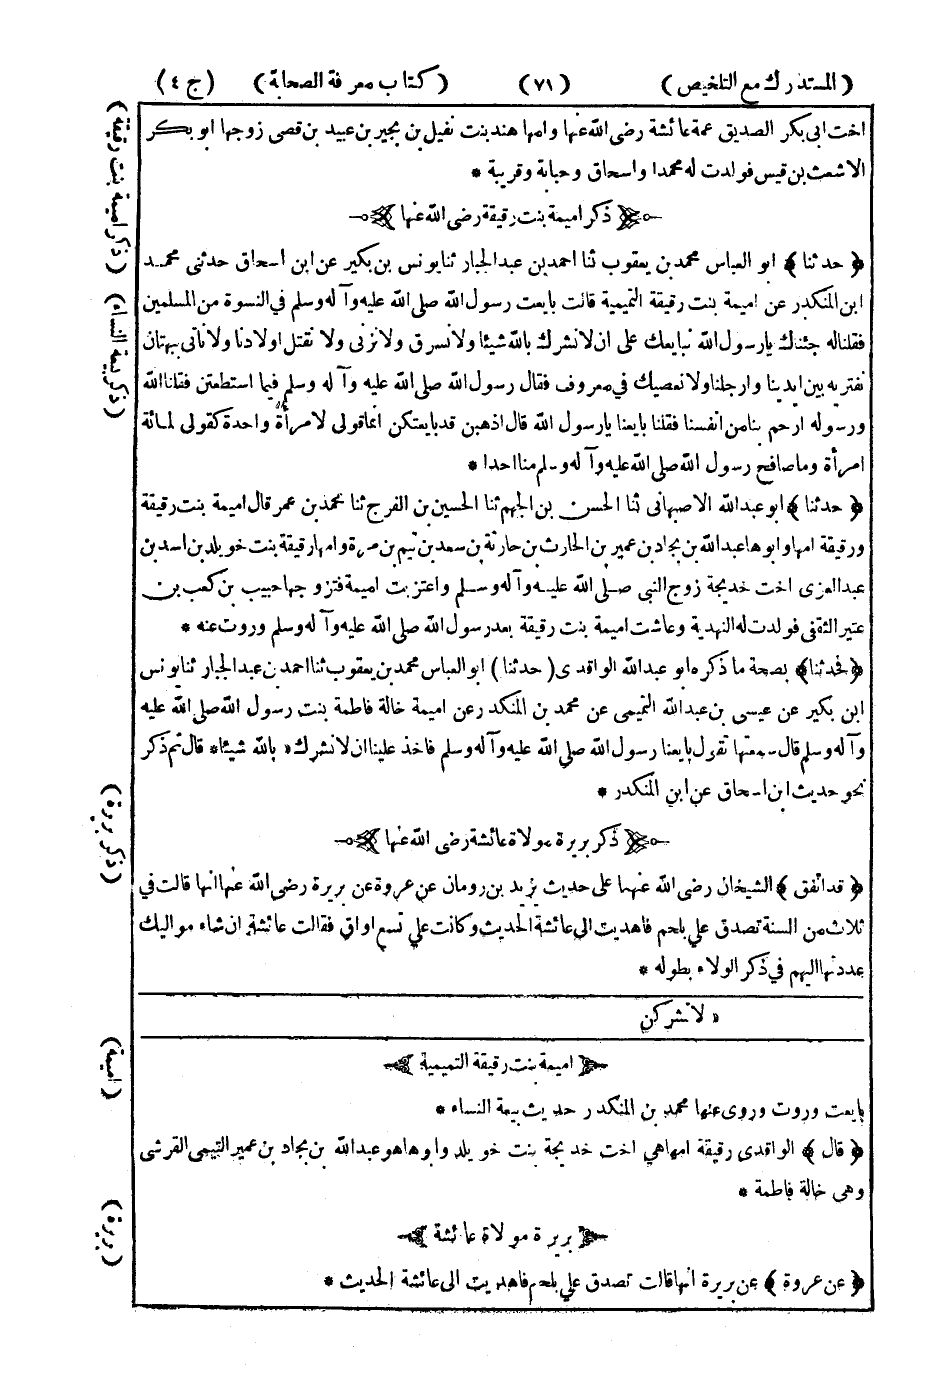 (المستدرك مع التلخيص) (٧١) (كتاب معرفة الصحابة) (ج ٤)
اخت ابى بكر الصديق عمة عائشة رضى الله عنها وامها هند بنت نفيل بن بجير بن عبيد بن قصى زوجها ابو بكر
الاشعث بن قيس فولدت له محمدا واسحاق وحبابة وقريبة *
ذكر اميمة بنت رقيقة رضى الله عنها
﴿ حدثنا ﴾ ابو العباس محمد بن يعقوب ثنا احمد بن عبد الجبار ثنا يونس بن بكير عن ابن اسحاق حدثنى محمد
ابن المنكدر عن اميمة بنت رقيقة التميمية قالت بايعت رسول الله صلى الله عليه وآله وسلم فى النسوة من المسلمين
فقلنا له جئناك يارسول الله نبايعك على ان لانشرك بالله شيئا ولانسرق ولانزنى ولا نقتل اولادنا ولا نأتى ببهتان
نفتريه بين ايدينا وارجلنا ولا نعصيك فى معروف فقال رسول الله صلى الله عليه وآله وسلم فيما استطعتن فقلنا الله
ورسوله ارحم بنا من انفسنا فقلنا بايعنا يارسول الله قال اذهبن قد بايعتكن انما قولى لامرأة واحدة كقولى لمائة
امرأة وما صافح رسول الله صلى الله عليه وآله وسلم منا احدا *
﴿ حدثنا ﴾ ابو عبد الله الاصبهانى ثنا الحسن بن الجهم ثنا الحسين بن الفرج ثنا محمد بن عمر قال اميمة بنت رقيقة
ورقيقة امها وابوها عبد الله بن بجاد بن عمير بن الحارث بن حارثة بن سعد بن تيم بن مرة وامها رقيقة بنت خويلد بن اسد بن
عبد العزى اخت خديجة زوج النبى صلى الله عليه وآله وسلم واعتزبت اميمة فتزوجها حبيب بن كعب بن
عتير الثقفى فولدت له النهدية وعاشت اميمة بنت رقيقة بعد رسول الله صلى الله عليه وآله وسلم وروت عنه *
﴿ فحدثنا ﴾ بصحة ما ذكره ابو عبد الله الواقدى (حدثنا) ابو العباس محمد بن يعقوب ثنا احمد بن عبد الجبار ثنا يونس
ابن بكير عن عيسى بن عبد الله التميمى عن محمد بن المنكدر عن اميمة خالة فاطمة بنت رسول الله صلى الله عليه
وآله وسلم قال سمعتها تقول بايعنا رسول الله صلى الله عليه وآله وسلم فاخذ علينا ان لانشرك « بالله شيئا * قال ثم ذكر
نحو حديث ابن اسحاق عن ابن المنكدر *
ذكر بريرة مولاة عائشة رضى الله عنها
﴿ قد اتفق ﴾ الشيخان رضى الله عنهما على حديث يزيد بن رومان عن عروة عن بريرة رضى الله عنها انها قالت فى
ثلاث من السنة تصدق على بلحم فاهديت الى عائشة الحديث وكانت على تسع اواق فقالت عائشة ان شاء مواليك
عددتها اليهم فى ذكر الولاء بطوله *
« لا تشركن
اميمة بنت رقيقة التميمية
بايعت وروت وروى عنها محمد بن المنكدر حديث بيعة النساء *
﴿ قال ﴾ الواقدى رقيقة امها هى اخت خديجة بنت خويلد وابوها هو عبد الله بن بجاد بن عمير التيمى القرشى
وهى خالة فاطمة *
بريرة مولاة عائشة
﴿ عن عروة ﴾ عن بريرة انها قالت تصدق على بلحم فاهديت الى عائشة الحديث *
(ذكر اميمة بنت رقيقة)
(ذكر بيعة النساء)
(ذكر بريرة)
(اميمة)
(بريرة)